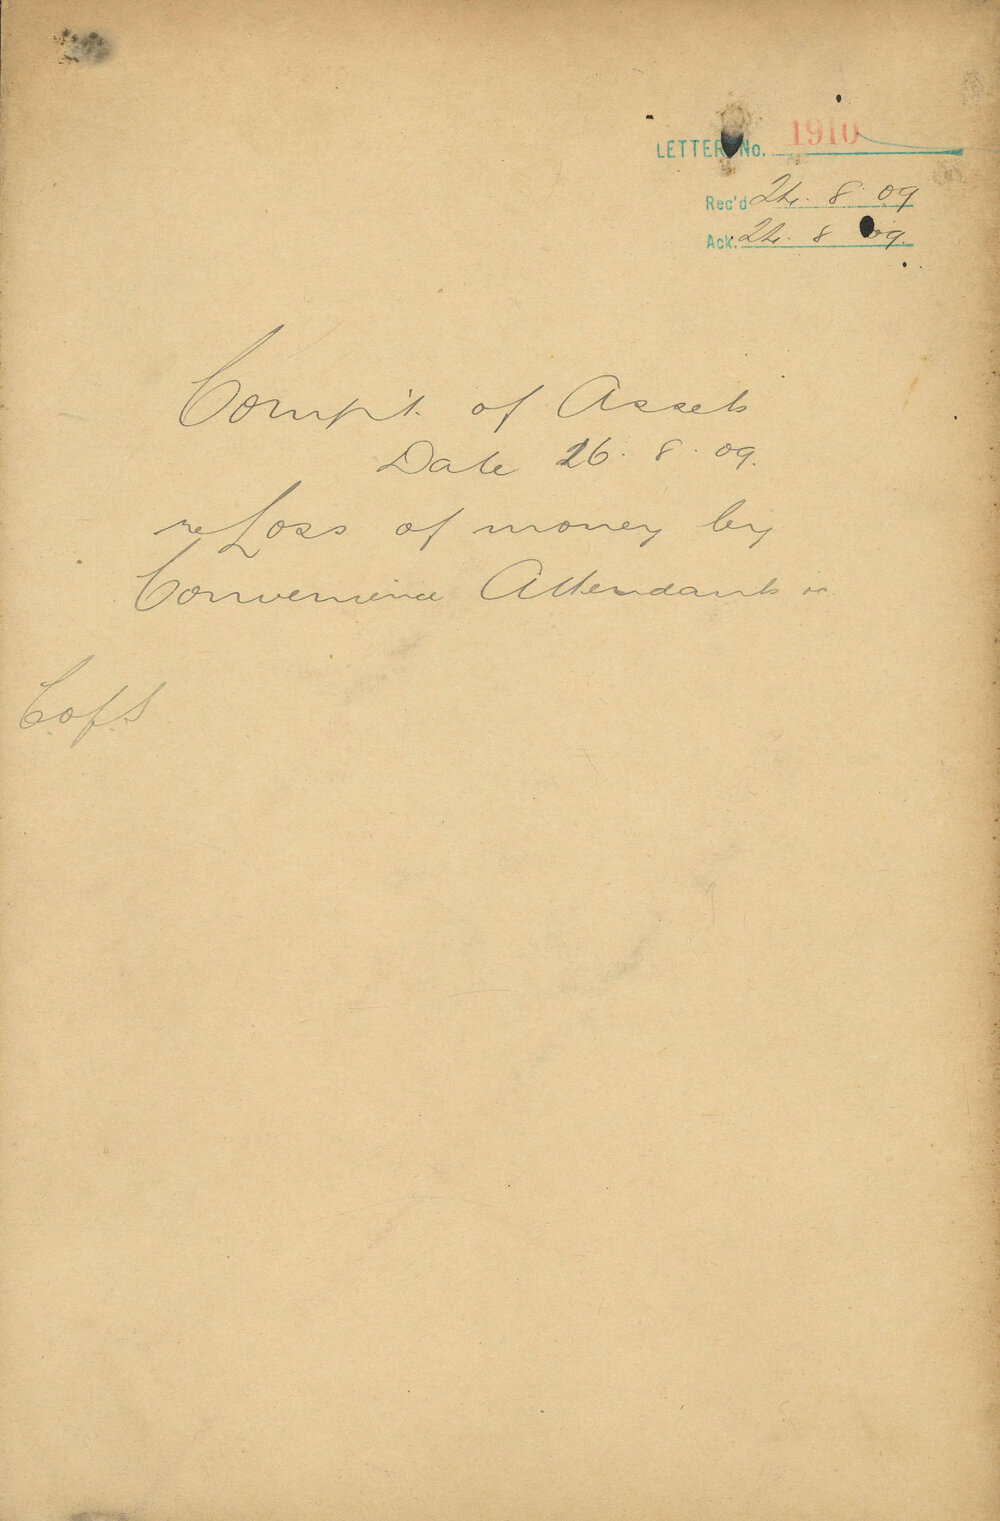 LETTER No. 1910
Rec'd 24. 8. 09
Ack. 24. 8. 09.
Compt. of Assets
Date 26. 8. 09.
re Loss of money by
Convenience Attendants
C. of S.